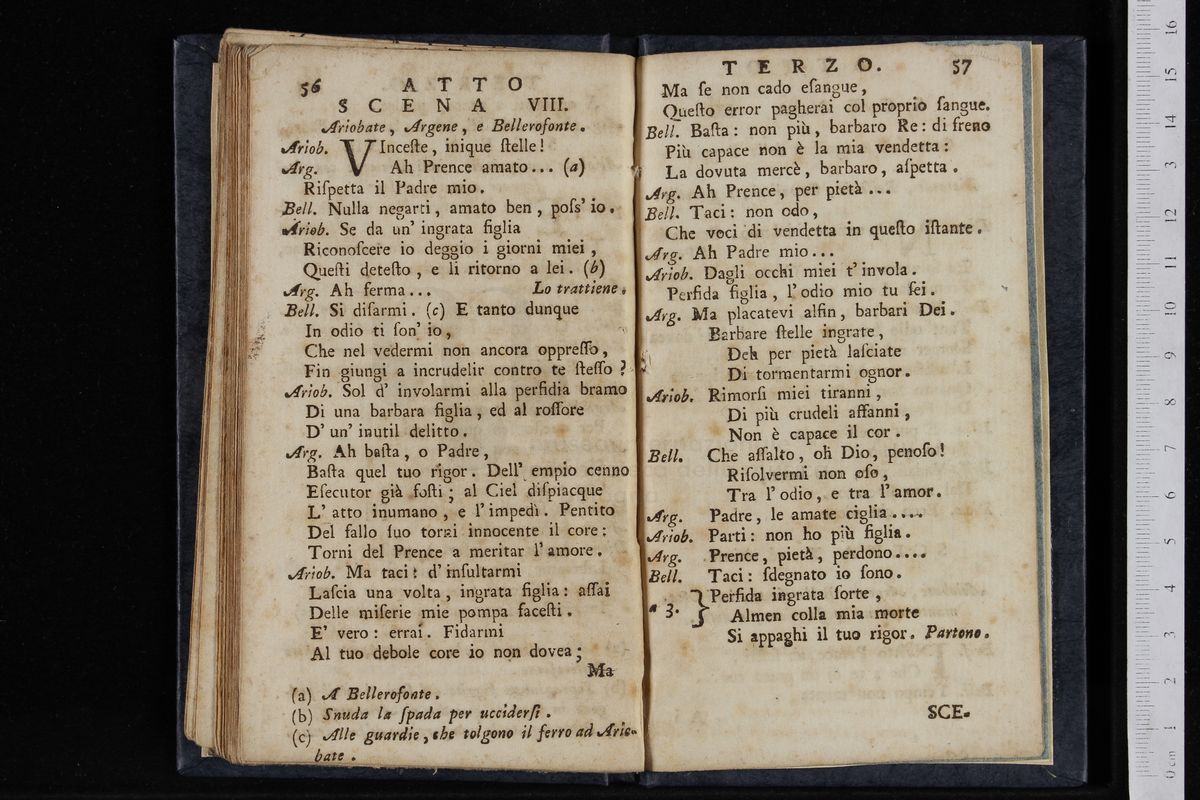 56 ATTO
SCENA VIII.
Ariobate, Argene, e Bellerofonte.
Ariob. VInceſte, inique ſtelle!
Arg. Ah Prence amato... (a)
Riſpetta il Padre mio.
Bell. Nulla negarti, amato ben, poſs' io.
Ariob. Se da un' ingrata figlia
Riconoſcere io deggio i giorni miei,
Queſti deteſto, e li ritorno a lei. (b)
Arg. Ah ferma... Lo trattiene.
Bell. Si diſarmi. (c) E tanto dunque
In odio ti ſon' io,
Che nel vedermi non ancora oppreſſo,
Fin giungi a incrudelir contro te ſteſſo?
Ariob. Sol d' involarmi alla perfidia bramo
Di una barbara figlia, ed al roſſore
D' un' inutil delitto.
Arg. Ah baſta, o Padre,
Baſta quel tuo rigor. Dell' empio cenno
Eſecutor già foſti; al Ciel diſpiacque
L' atto inumano, e l' impedì. Pentito
Del fallo ſuo torni innocente il core:
Torni del Prence a meritar l' amore.
Ariob. Ma taci: d' inſultarmi
Laſcia una volta, ingrata figlia: aſſai
Delle miſerie mie pompa faceſti.
E' vero: errai. Fidarmi
Al tuo debole core io non dovea;
Ma
(a) A Bellerofonte.
(b) Snuda la ſpada per ucciderſi.
(c) Alle guardie, che tolgono il ferro ad Ario-
bate.
TERZO. 57
Ma ſe non cado eſangue,
Queſto error pagherai col proprio ſangue.
Bell. Baſta: non più, barbaro Re: di freno
Più capace non è la mia vendetta:
La dovuta mercè, barbaro, aſpetta.
Arg. Ah Prence, per pietà...
Bell. Taci: non odo,
Che voci di vendetta in queſto iſtante.
Arg. Ah Padre mio...
Ariob. Dagli occhi miei t' invola.
Perfida figlia, l' odio mio tu ſei.
Arg. Ma placatevi alfin, barbari Dei.
Barbare ſtelle ingrate,
Deh per pietà laſciate
Di tormentarmi ognor.
Ariob. Rimorſi miei tiranni,
Di più crudeli affanni,
Non è capace il cor.
Bell. Che aſſalto, oh Dio, penoſo!
Riſolvermi non oſo,
Tra l' odio, e tra l' amor.
Arg. Padre, le amate ciglia....
Ariob. Parti: non ho più figlia.
Arg. Prence, pietà, perdono....
Bell. Taci: ſdegnato io ſono.
a 3. } Perfida ingrata ſorte,
Almen colla mia morte
Si appaghi il tuo rigor. Partono.
SCE-
0 cm 1 2 3 4 5 6 7 8 9 10 11 12 13 14 15 16